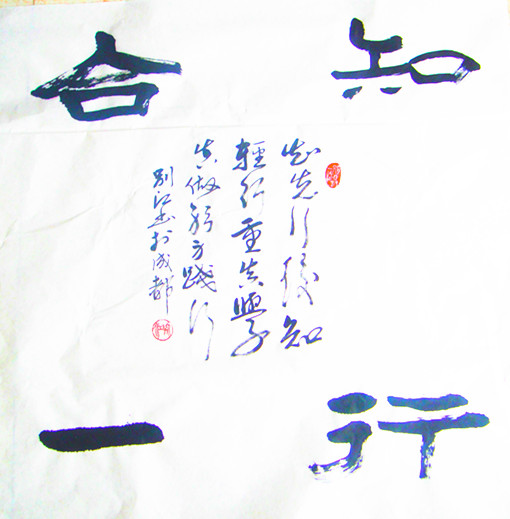 知
行
合
一
知先行後知
輕行重真學
真做方踐行
别江书於成都